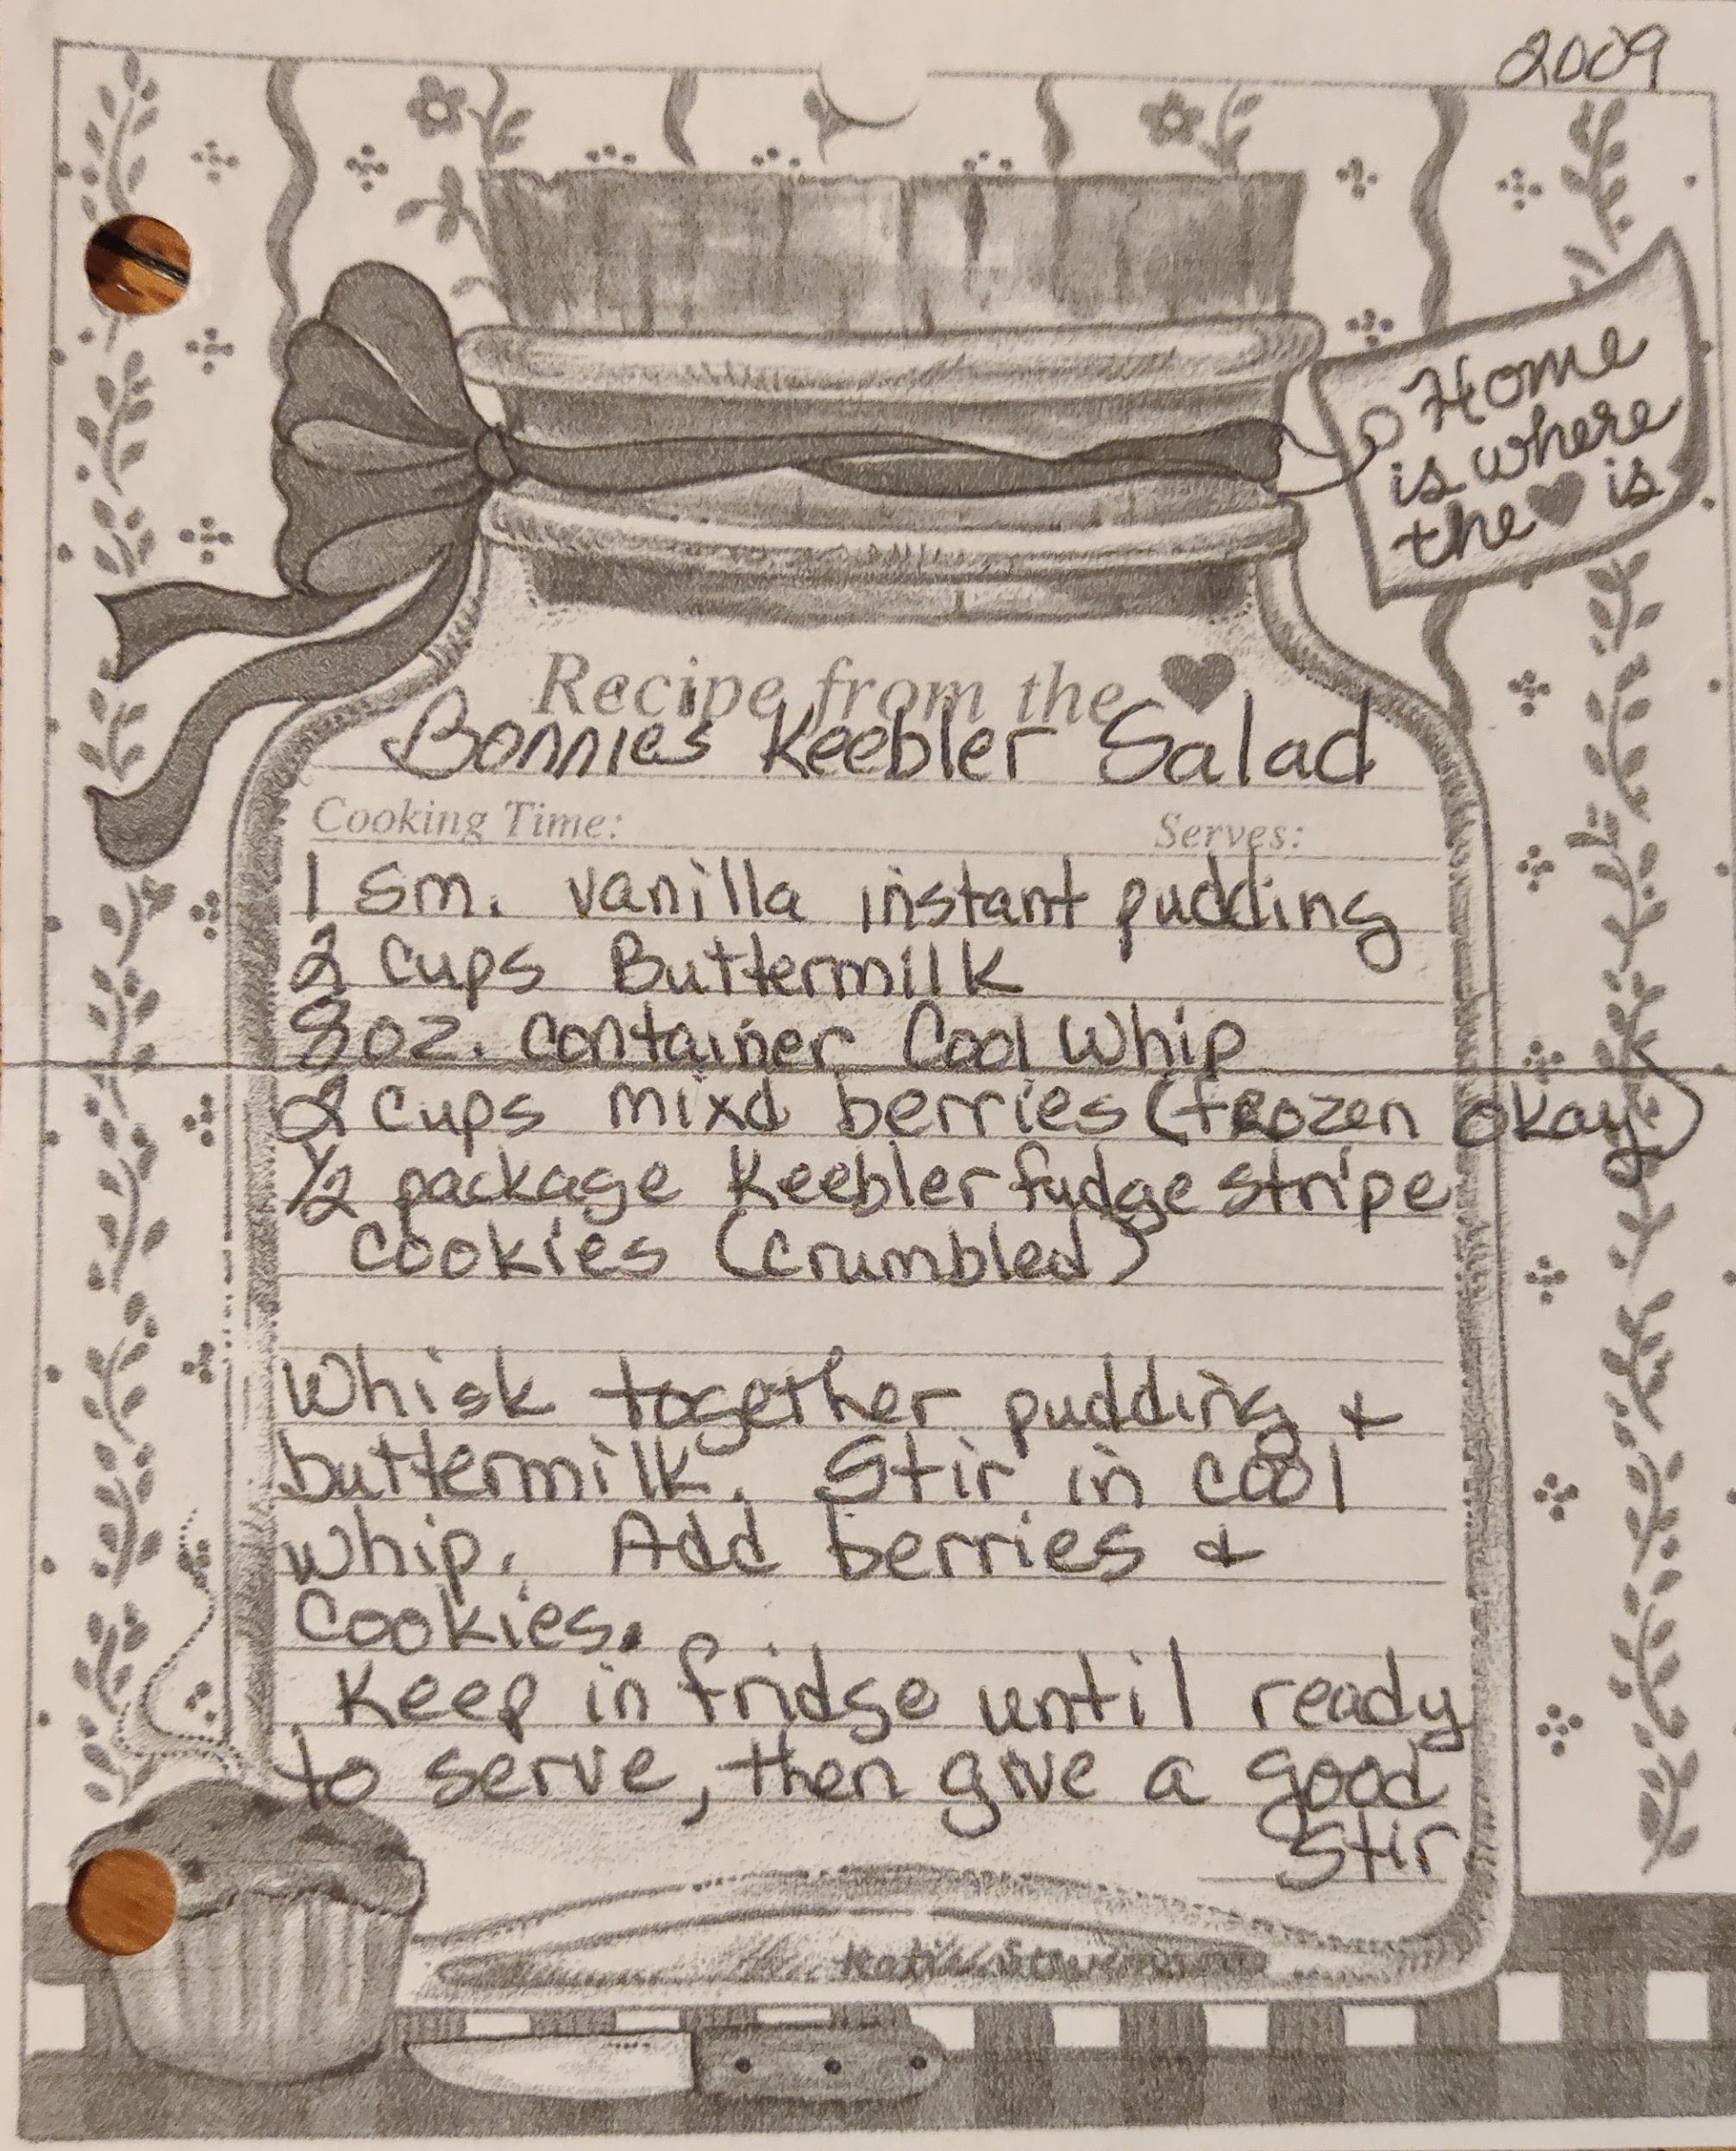 2009
Home
is where
the ♥ is
Recipe from the ♥
Bonnies Keebler Salad
Cooking Time: Serves:
1 sm. vanilla instant pudding
2 cups Buttermilk
8oz. container Cool Whip
2 cups mixd berries (frozen okay)
1/2 package Keebler fudge stripe
cookies (crumbled)
Whisk together pudding +
buttermilk. Stir in cool
whip. Add berries +
Cookies.
Keep in fridge until ready
to serve, then give a good
stir
Katie